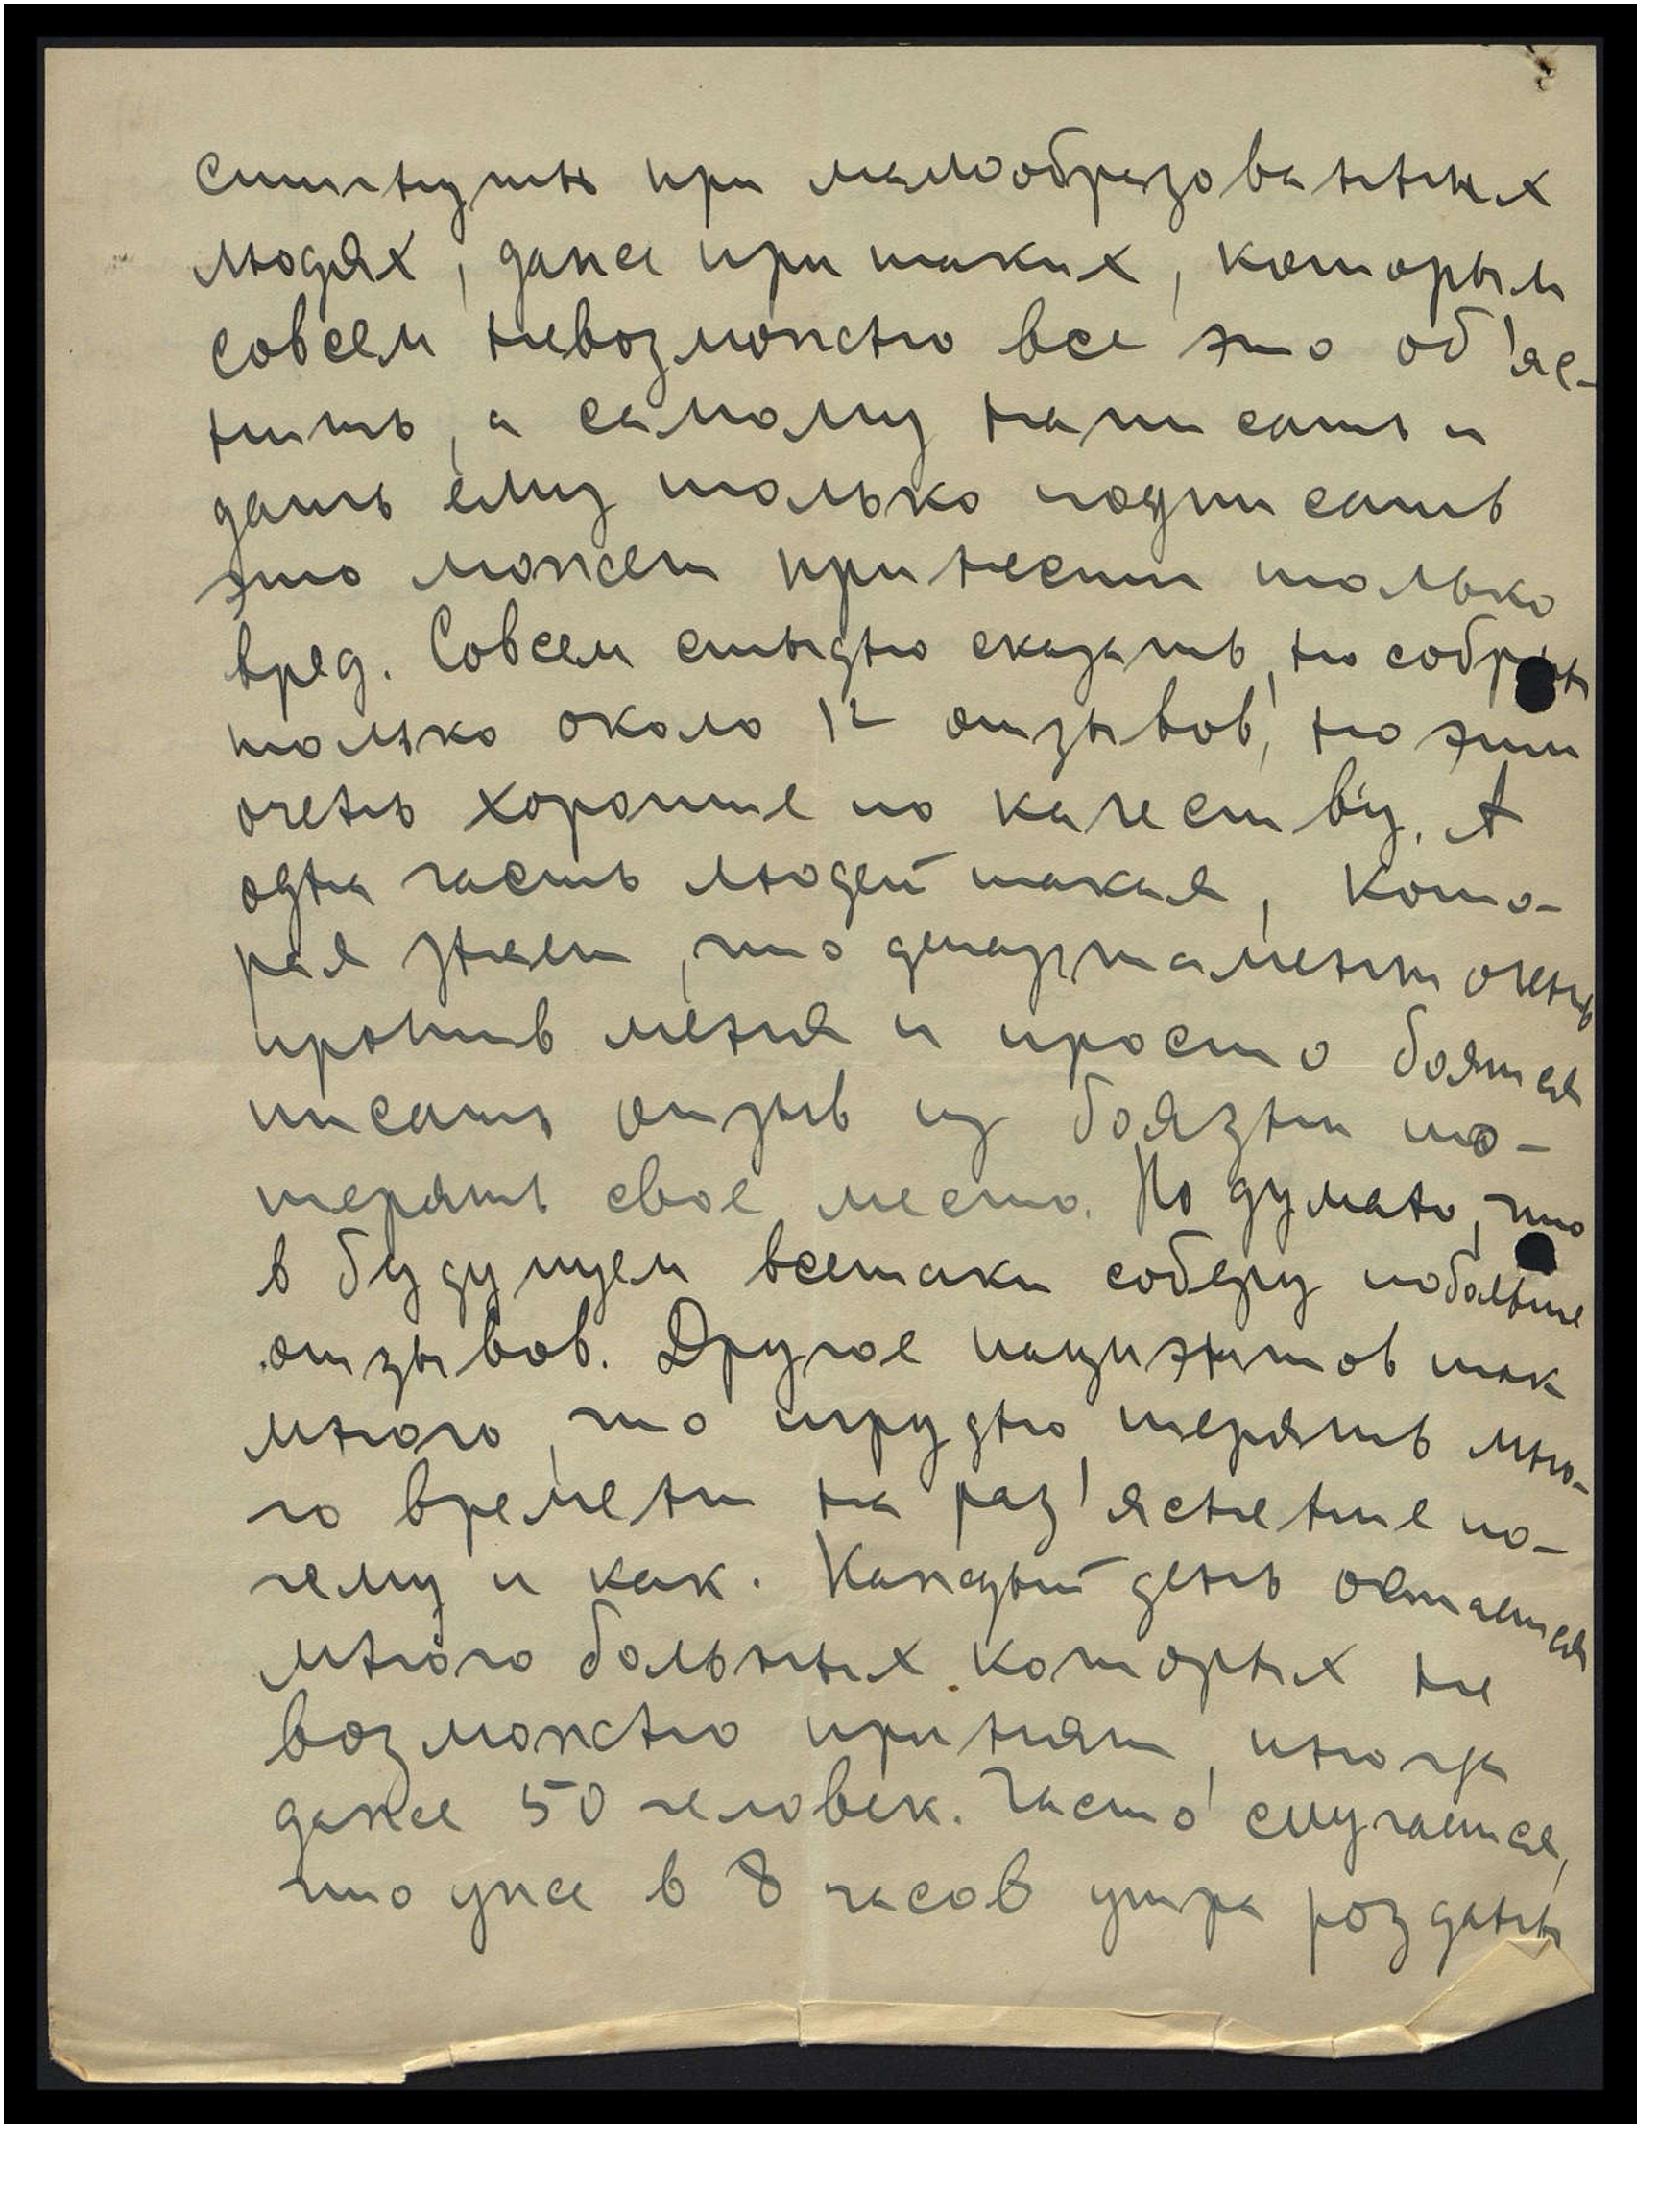 ституты при малообразованных
людях, даже при таких, которым
совсем невозможно все это об'яс-
нить, а самому написать и
дать ему только подписать
это может принести только
вред. Совсем стыдно сказать, но собраны
только около 12 отзывов, но эти
очень хорошие по качеству. А
одна часть людей такая, кото-
рая знает, что департамент очень
против меня и просто боятся
писать отзыв из боязни по-
терять свое место. Но думаю, что
в будущем всетаки соберу побольше
отзывов. Другое пациэнтов так
много, что трудно терять мно-
го времени на раз'яснение по-
чему и как. Каждый день остается
много больных которых не
возможно принят, иногда
даже 50 человек. Часто случается,
что уже в 8 часов утра розданы